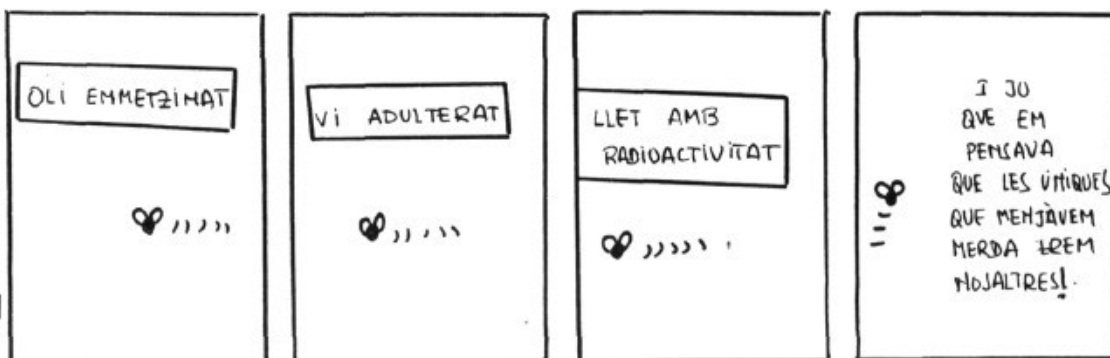 OLI EMMETZINAT
VI ADULTERAT
LLET AMB
RADIOACTIVITAT
I JO
QUE EM
PENSAVA
QUE LES ÚNIQUES
QUE MENJÀVEM
MERDA EREM
NOSALTRES!.